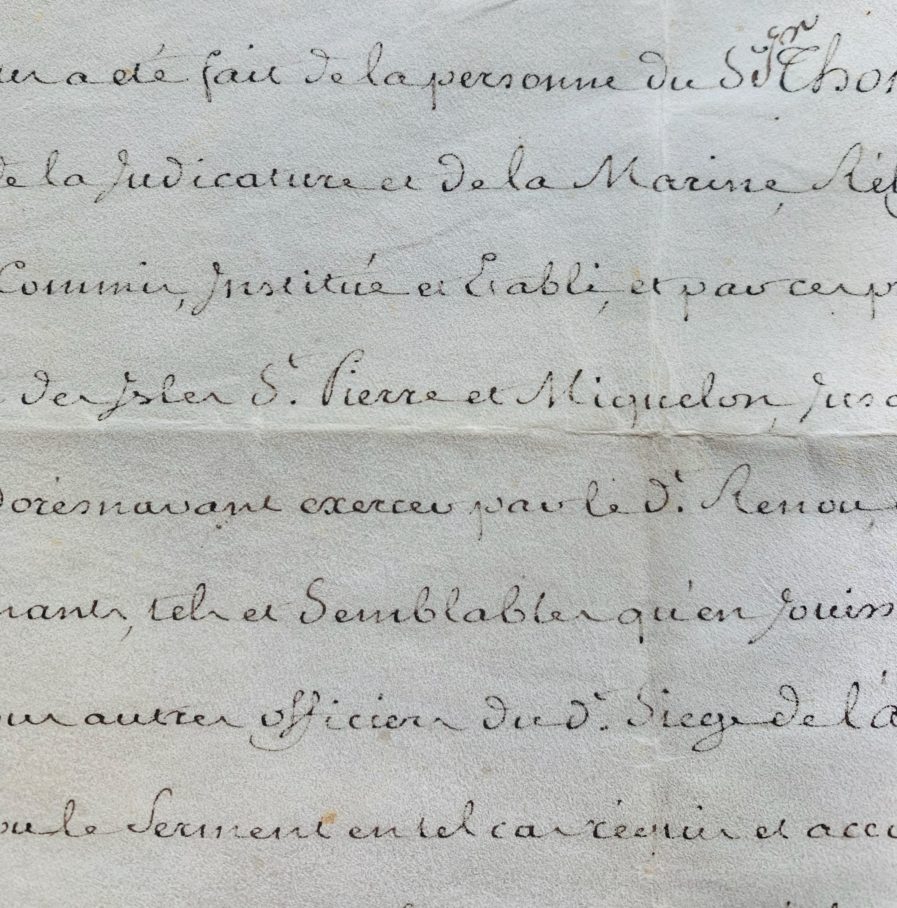 a eté fait de la personne du Sr. Jn Thom
de la Judicature et de la Marine, Rél
Commis, Institué et Etabli, et par ces p
des Isles St. Pierre et Miquelon, Jusq
Dorésnavant exercer par le d. Renou,
nants, tels et Semblables qu'en Jouiss
autres officiers du dt. Siege de l'a
le Serment en tel cas réquis et accou